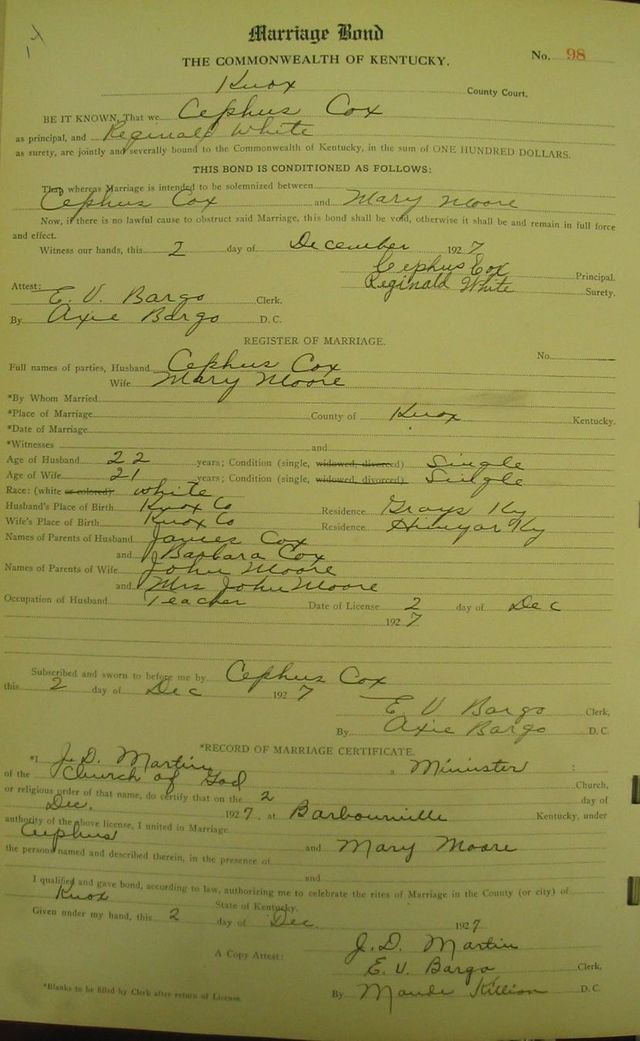 Marriage Bond
THE COMMONWEALTH OF KENTUCKY. No. 98
Knox County Court.
BE IT KNOWN, That we Cephus Cox
as principal, and Reginald White
as surety, are jointly and severally bound to the Commonwealth of Kentucky, in the sum of ONE HUNDRED DOLLARS.
THIS BOND IS CONDITIONED AS FOLLOWS:
That whereas Marriage is intended to be solemnized between
Cephus Cox and Mary Moore
Now, if there is no lawful cause to obstruct said Marriage, this bond shall be void, otherwise it shall be and remain in full force
and effect.
Witness our hands, this 2 day of December 1927
Cephus Cox Principal.
Attest: Reginald White Surety.
E. V. Bargo Clerk.
By Axie Bargo D. C.
REGISTER OF MARRIAGE.
No.
Full names of parties, Husband Cephus Cox
Wife Mary Moore
*By Whom Married
*Place of Marriage County of Knox Kentucky.
*Date of Marriage
*Witnesses and
Age of Husband 22 years; Condition (single, widowed, divorced) Single
Age of Wife 21 years; Condition (single, widowed, divorced) Single
Race: (white or colored) white
Husband's Place of Birth Knox Co Residence Grays Ky
Wife's Place of Birth Knox Co Residence Himyar Ky
Names of Parents of Husband James Cox
and Barbara Cox
Names of Parents of Wife John Moore
and Mrs John Moore
Occupation of Husband Teacher Date of License 2 day of Dec
1927
Subscribed and sworn to before me by Cephus Cox
this 2 day of Dec 1927
E. V Bargo Clerk,
By Axie Bargo D. C.
*RECORD OF MARRIAGE CERTIFICATE.
*I J. D. Martin a Minister :
of the Church of God Church,
or religious order of that name, do certify that on the 2 day of
Dec. 1927, at Barbourville Kentucky, under
authority of the above license, I united in Marriage
Cephus and Mary Moore
the persons named and described therein, in the presence of
and
I qualified and gave bond, according to law, authorizing me to celebrate the rites of Marriage in the County (or city) of
Knox State of Kentucky.
Given under my hand, this 2 day of Dec. 1927
J. D. Martin
A Copy Attest: E. V. Bargo Clerk,
*Blanks to be filled by Clerk after return of License. By Maude Killion D. C.